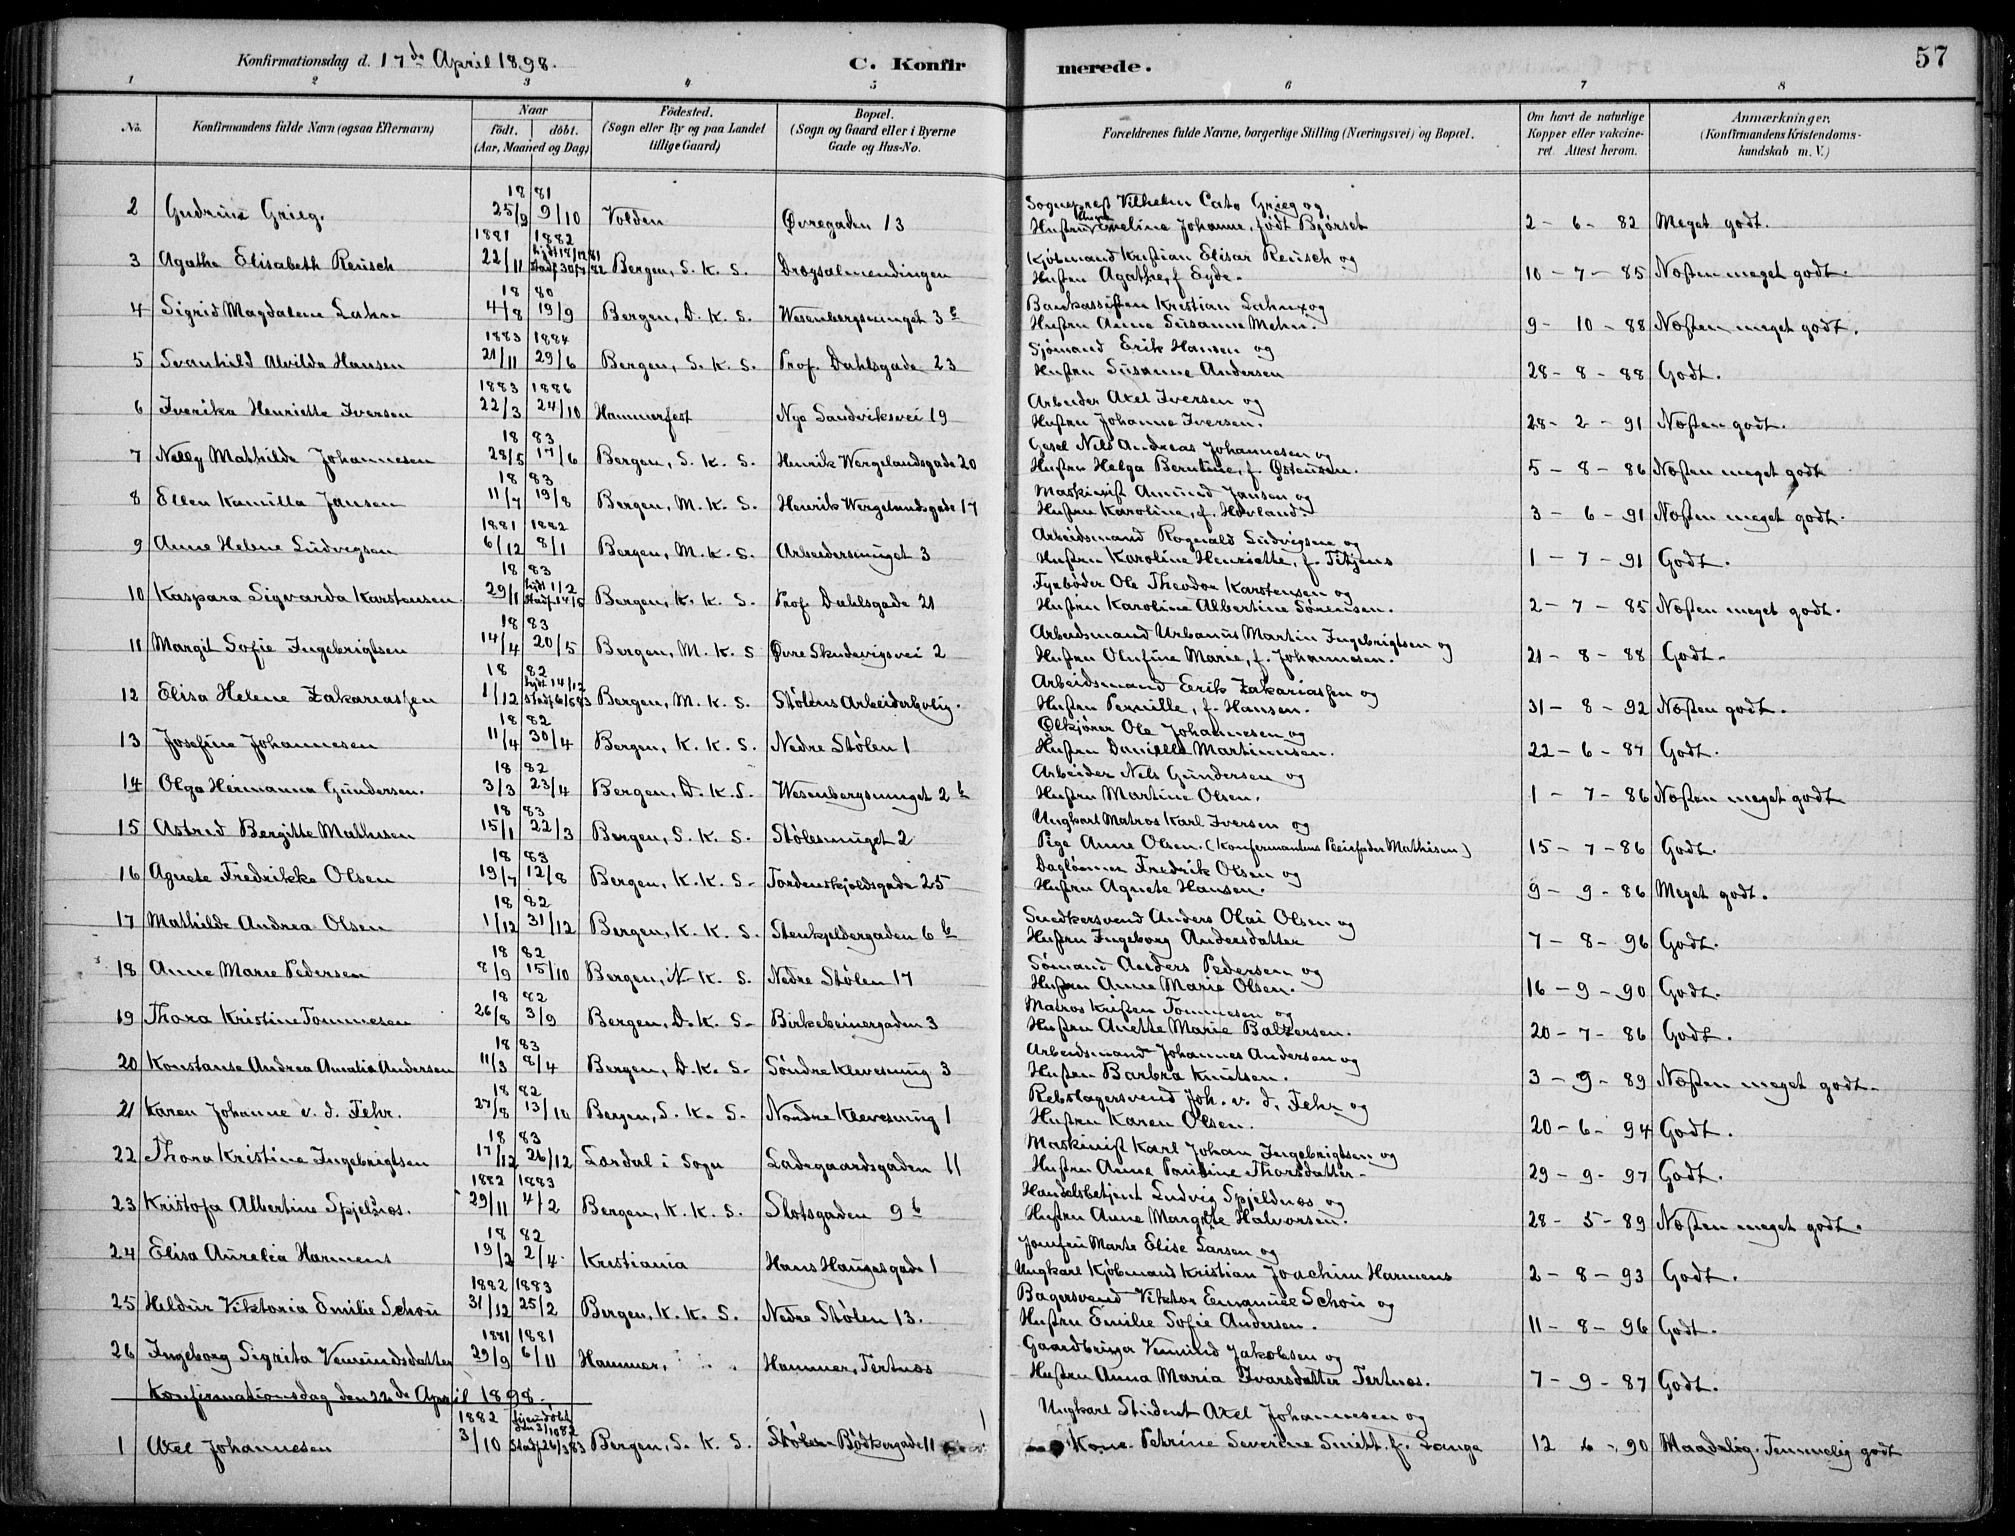 57
Konfirmationsdag d. 17de April 1898.
C. Konfirmerede.
1 2 3 4 5 6 7 8
No. Konfirmandens fulde Navn (ogsaa Efternavn) Naar född. döbt. (Aar, Maaned og Dag) Födested. (Sogn eller By og paa Landet tillige Gaard) Bopæl. (Sogn og Gaard eller i Byerne Gade og Hus-No. Forældrenes fulde Navne, borgerlige Stilling (Næringsvei) og Bopæl. Om havt de naturlige Kopper eller vakcineret. Attest herom. Anmærkninger. (Konfirmandens Kristendomskundskab m. V.)
2 Gudrun Grieg. 1881 25/9 9/10 Volden Øvregaden 13 Sogneprest Vilhelm Cato Grieg og Hustru Emeline Johanne, født Bjørset 2-6-82 Meget godt.
3 Agathe Elisabeth Reusch 1881 22/11 1882 Bergen, S. K. S. Dregsalmendingen Kjøbmand Kristian Elisar Reusch og Hustru Agathe, f Eyde. 10-7-85 Næsten meget godt.
4 Sigrid Magdalene Lahn 1880 4/8 19/9 Bergen, D. K. S. Wesenbergsmuget 3 Bankassisten Kristian Lahn og Hustru Anne Susanne Mehn. 9-10-88 Næsten meget godt.
5 Svanhild Alvilda Hansen 1883 21/11 1884 29/6 Bergen, S. K. S. Prof. Dahlsgade 23 Sjømand Erik Hansen og Hustru Susanne Andersen 28-8-88 Godt.
6 Iverika Henriette Iversen 1883 22/3 1886 24/10 Hammerfest Nye Sandviksvei 19 Arbeider Axel Iversen og Hustru Johanne Iversen. 28-2-91 Næsten godt.
7 Nelly Mathilde Johannesen 1883 28/5 17/6 Bergen, S. K. S. Henrik Wergelandsgade 20 Gesel Nils Andreas Johannesen og Hustru Helga Berntine, f. Østensen. 5-8-86 Næsten meget godt
8 Ellen Kamilla Jansen 1883 11/7 19/8 Bergen, M. K. S. Henrik Wergelandsgade 17 Maskinist Amund Jansen og Hustru Karoline, f. Hovland. 3-6-91 Næsten meget godt.
9 Anne Helene Ludvigsen 1881 6/12 1882 8/1 Bergen, M. K. S. Arbeidersmuget 3 Arbeidsmand Rognald Ludvigsen og Hustru Karoline Henriette, f. Titjens 1-7-91 Godt.
10 Kaspara Sigvarda Karstensen 1883 29/1 Hjdt 1/2 Stadf. 14/5 Bergen, K. K. S. Prof Dahlsgade 21 Fyrbøder Ole Theodor Karstensen og Hustru Karoline Albertine Sørensen. 2-7-85 Næsten meget godt.
11 Margit Sofie Ingebrigtsen 1883 14/4 20/5 Bergen, M. K. S Øvre Skudevigsvei 2 Arbeidsmand Urbanus Martin Ingebrigtsen og Hustru Olufine Marie, f. Johannesen. 21-8-88 Godt.
12 Elisa Helene Zakariassen 1882 1/12 Hjdt 14/12 Stadf. 6/5 83 Bergen, M. K. S. Stølens Arbeiderbolig. Arbeidsmand Erik Zakariassen og Hustru Pernille, f. Hansen. 31-8-92 Næsten godt.
13 Josefine Johannesen 1882 11/4 30/4 Bergen, K. K. S. Nedre Stølen 1 Ølkjører Ole Johannesen og Hustru Danielle Martinusen. 22-6-87 Godt.
14 Olga Hermanna Gundersen. 1882 3/3 23/4 Bergen, D. K. S. Wesenbergsmuget 2 b Arbeider Nels Gundersen og Hustru Martine Olsen. 1-7-86 Næsten meget godt
15 Astrid Bergitte Mathisen 1883 15/1 22/3 Bergen, S. K. S. Stølesmuget 2 Ungkarl Matros Karl Iversen og Pige Anne Olsen. (Konfirmantens Pleiefader Mathisen) 15-7-86 Godt.
16 Agnete Fredrikke Olsen 1883 19/7 12/8 Bergen, K. K. S. Tordenskjoldsgade 25 Daglønner Fredrik Olsen og Hustru Agnete Hansen. 9-9-86 Meget godt.
17 Mathilde Andrea Olsen 1882 1/12 31/12 Bergen, K. K. S. Stenkjeldergaden 6 b Snedkersvend Anders Olai Olsen og Hustru Ingeborg Andersdatter 7-8-96 Godt.
18 Anne Marie Pedersen 1882 8/9 15/10 Bergen, N. K. S. Nedre Stølen 17 Sømand Anders Pedersen og Hustru Anne Marie Olsen. 16-9-90 Godt.
19 Thora Kristine Tommesen 1882 26/8 3/9 Bergen, D. K. S. Birkebeinergaden 3 Matros Kristen Tommesen og Hustru Anette Marie Balzersen. 20-7-86 Godt.
20 Konstanse Andrea Amalia Andersen 1883 11/3 8/4 Bergen, D. K. S. Søndre Klevesmug 3 Arbeidsmand Johannes Andersen og Hustru Barbra Knutsen. 3-9-89 Næsten meget godt.
21 Karen Johanne v. d. Fehr. 1882 27/8 13/10 Bergen, S. K. S. Nordre Klevesmug 1 Rebslagersvend Joh. v. d. Fehr og Hustru Karen Olsen. 20-6-94 Godt.
22 Thora Kristine Ingebrigtsen 1883 17/12 26/12 Lærdal i Sogn Ladegaardsgaden 11 Maskinist Karl Johan Ingebrigtsen og Hustru Anne Pauline Thorsdatter. 29-9-97 Godt.
23 Kristofa Albertine Spjeldnæs. 1882 29/11 1883 4/2 Bergen, K. K. S. Slotsgaden 9 b Handelsbetjent Ludvig Spjeldnæs og Hustru Anne Margrete Halvorsen. 28-5-89 Næsten meget godt.
24 Elisa Aurelia Harmens 1882 19/2 2/4 Kristiania Hans Haugesgade 1 Jomfru Marte Elise Larsen og Ungkarl Kjøbmand Kristian Joachim Harmens 2-8-93 Godt.
25 Heldur Viktoria Emilie Schou 1882 31/12 1883 25/2 Bergen, K. K. S. Nedre Stølen 13. Bagersvend Viktor Emanuel Schou og Hustru Emilie Sofie Andersen. 11-8-96 Godt.
26 Ingeborg Sigrita Vemundsdatter 1881 29/9 1881 6/11 Hammer, Hammer, Tertnæs Gaardbruger Vemund Jakobsen og Hustru Anna Maria Ivarsdatter Tertnæs. 7-9-87 Godt.
Konfirmationsdag den 22de April 1898.
1 Axel Johannesen 1882 3/10 Hjemdøbt den 3/10 82 Stadf. 26/3 83 Bergen, S. K. S. Stølen Bødkergade 11 Ungkarl Student Axel Johannesen og Kone Petrine Severine Smitt f. Lange 12 6-90 Maadelig. Temmelig godt